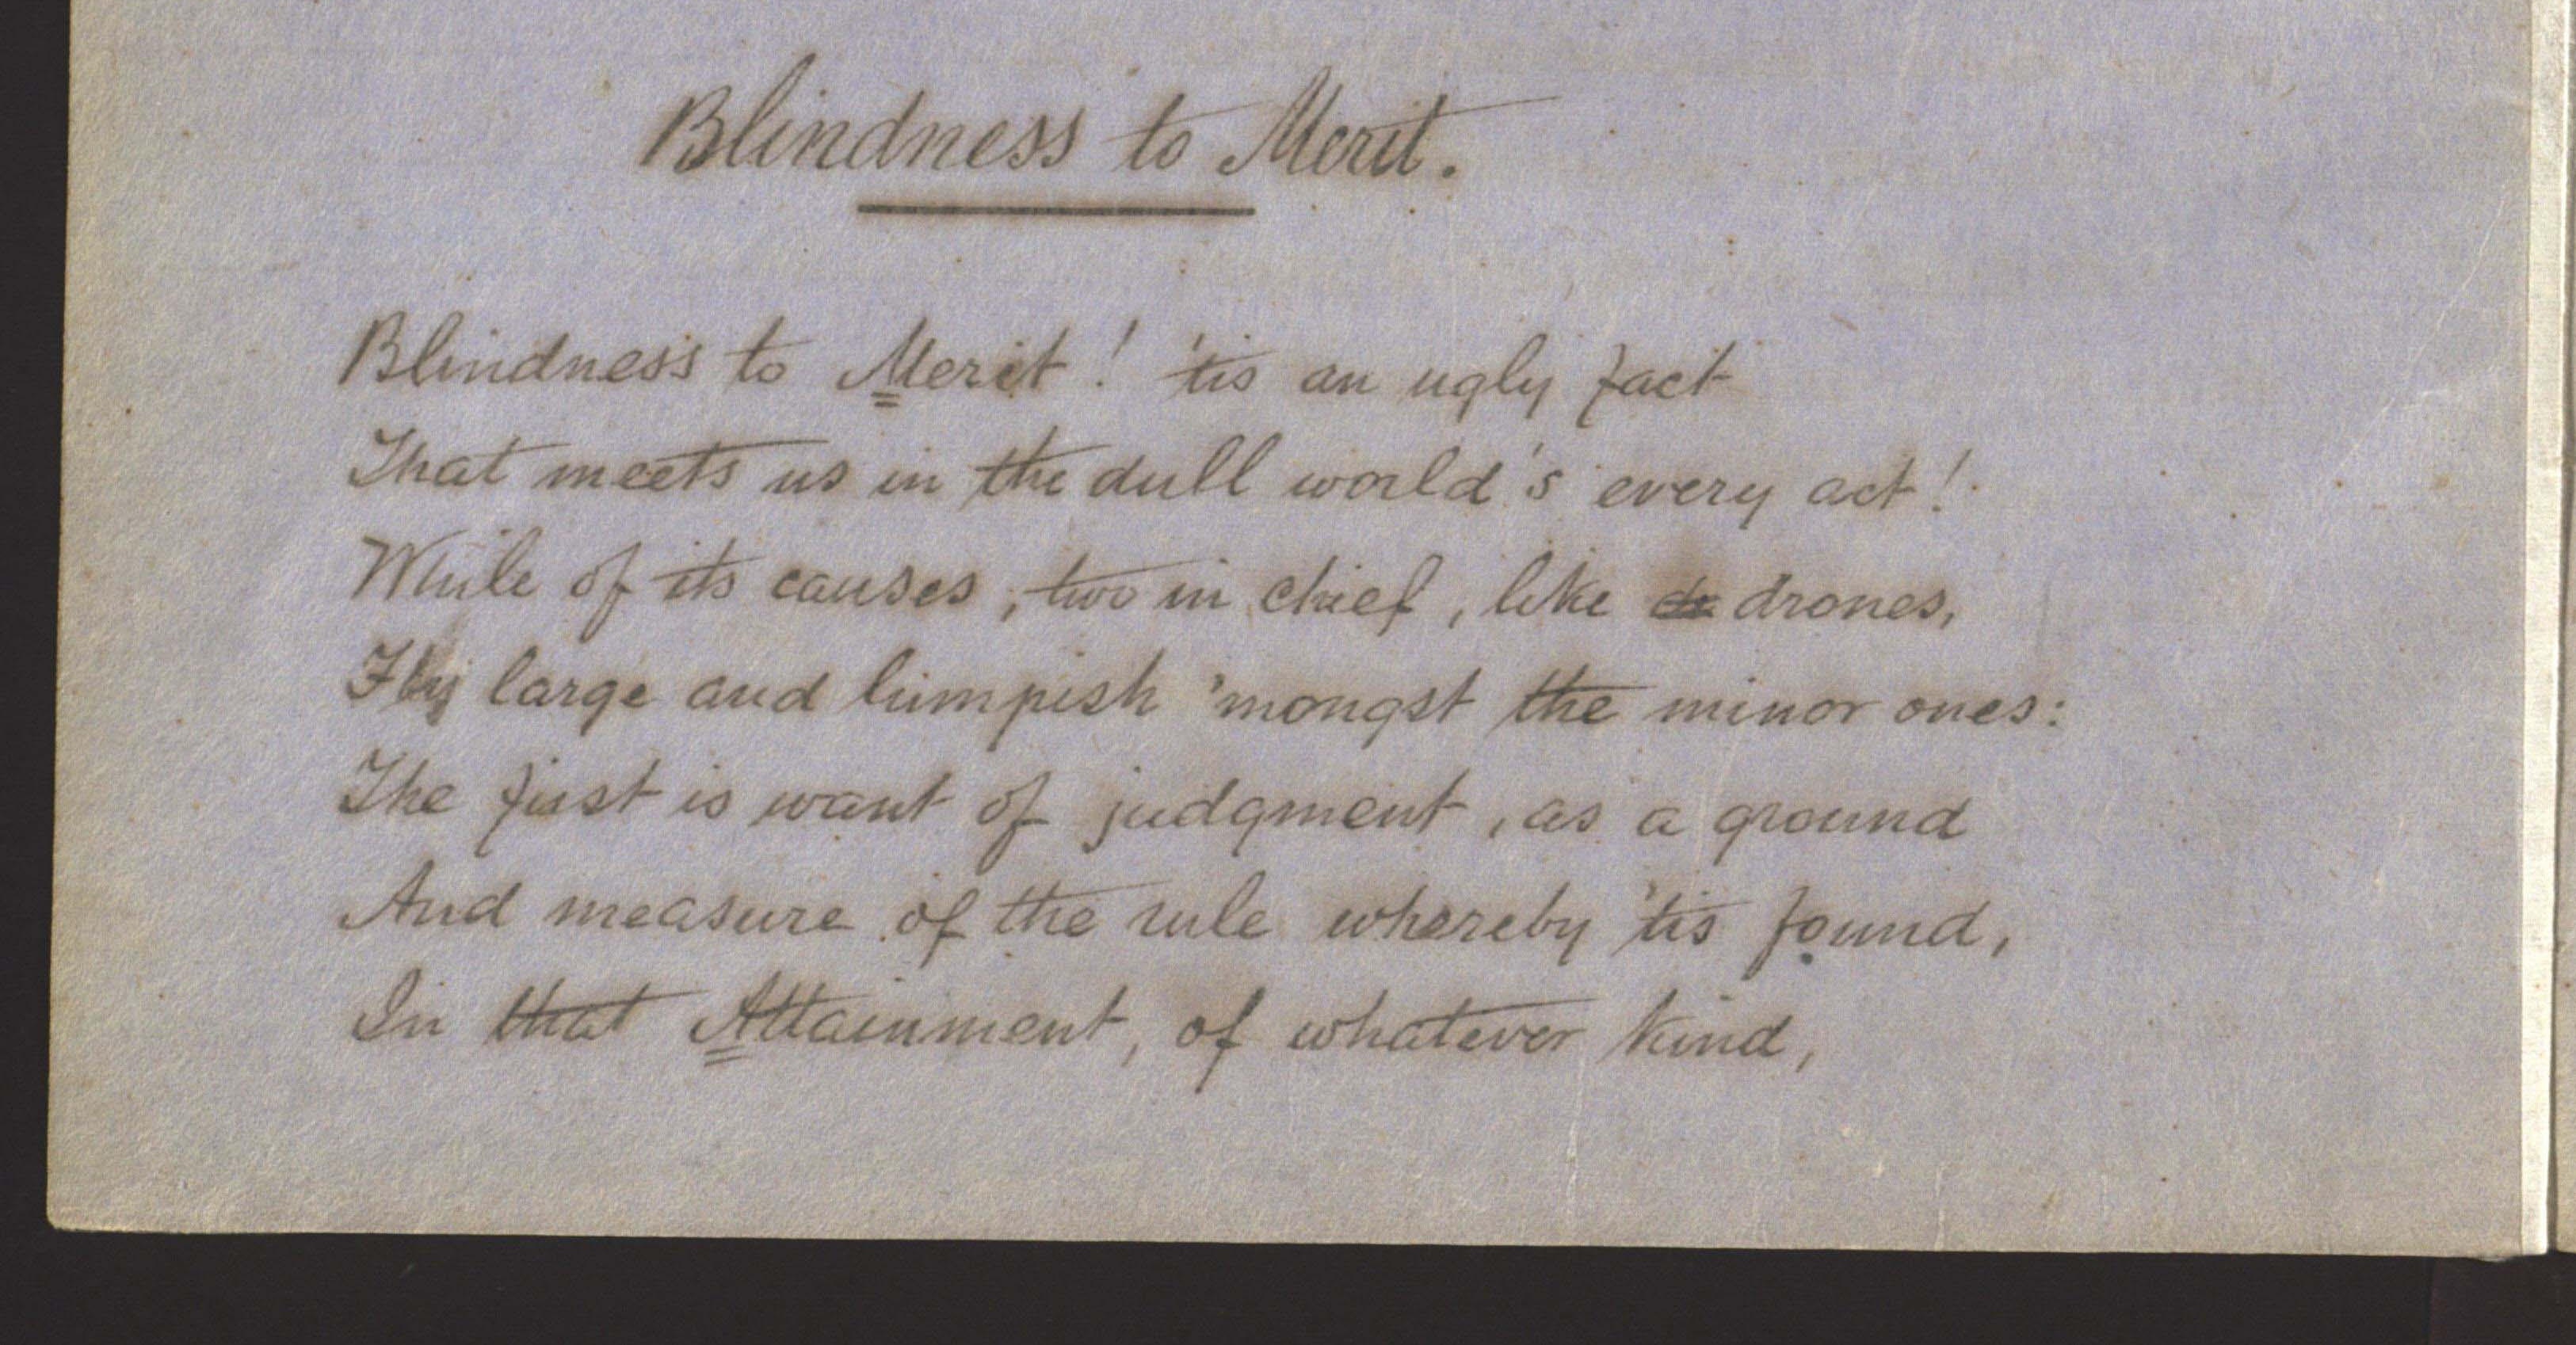 Blindness to Merit.
Blindness to Merit! 'tis an ugly fact
That meets us in the dull world's every act!
While of its causes, two in chief, like drones,
Fly large and lumpish 'mongst the minor ones:
The first is want of judgment, as a ground
And measure of the rule whereby 'tis found,
In that Attainment, of whatever kind,